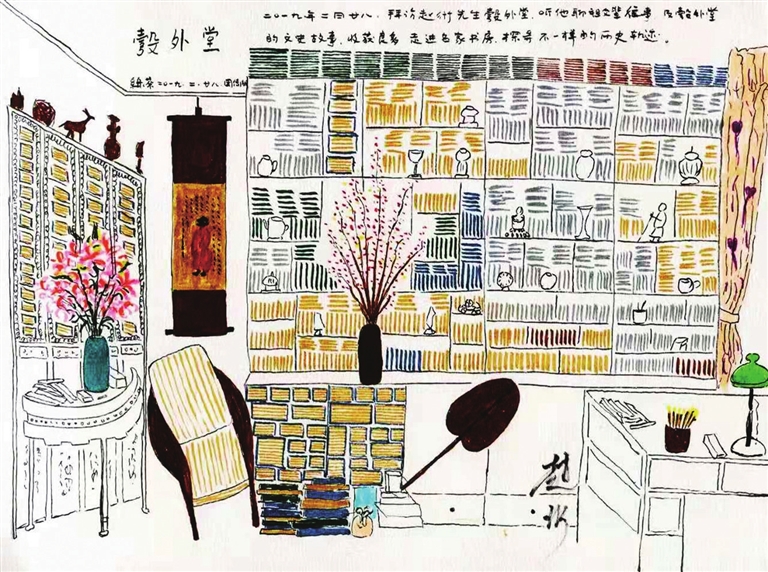 彀外堂
二〇一九年二月廿八,拜访赵珩先生彀外堂,听他聊祖父辈往事及彀外堂
的文史故事,收获良多,走进名家书房,探寻不一样的历史轨迹。
绿茶二〇一九.二.廿八.
赵珩